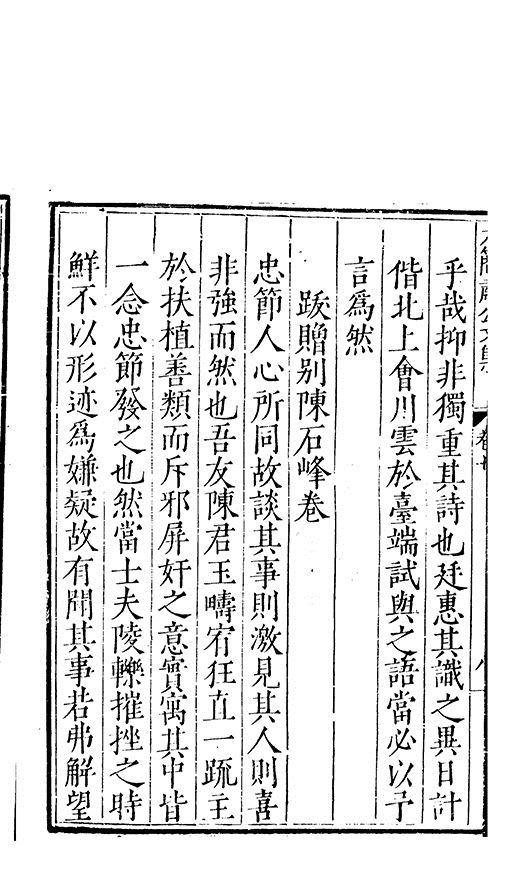 乎哉抑非獨重其詩也廷惠其識之異日計
偕北上會川雲於臺端試與之語當必以予
言爲然
跋贈别陳石峰卷
忠節人心所同故談其事則激見其人則喜
非強而然也吾友陳君玉疇宥狂直一疏主
於扶植善類而斥邪屏奸之意實寓其中皆
一念忠節發之也然當士夫陵轢摧挫之時
鮮不以形迹爲嫌疑故有聞其事若弗解望